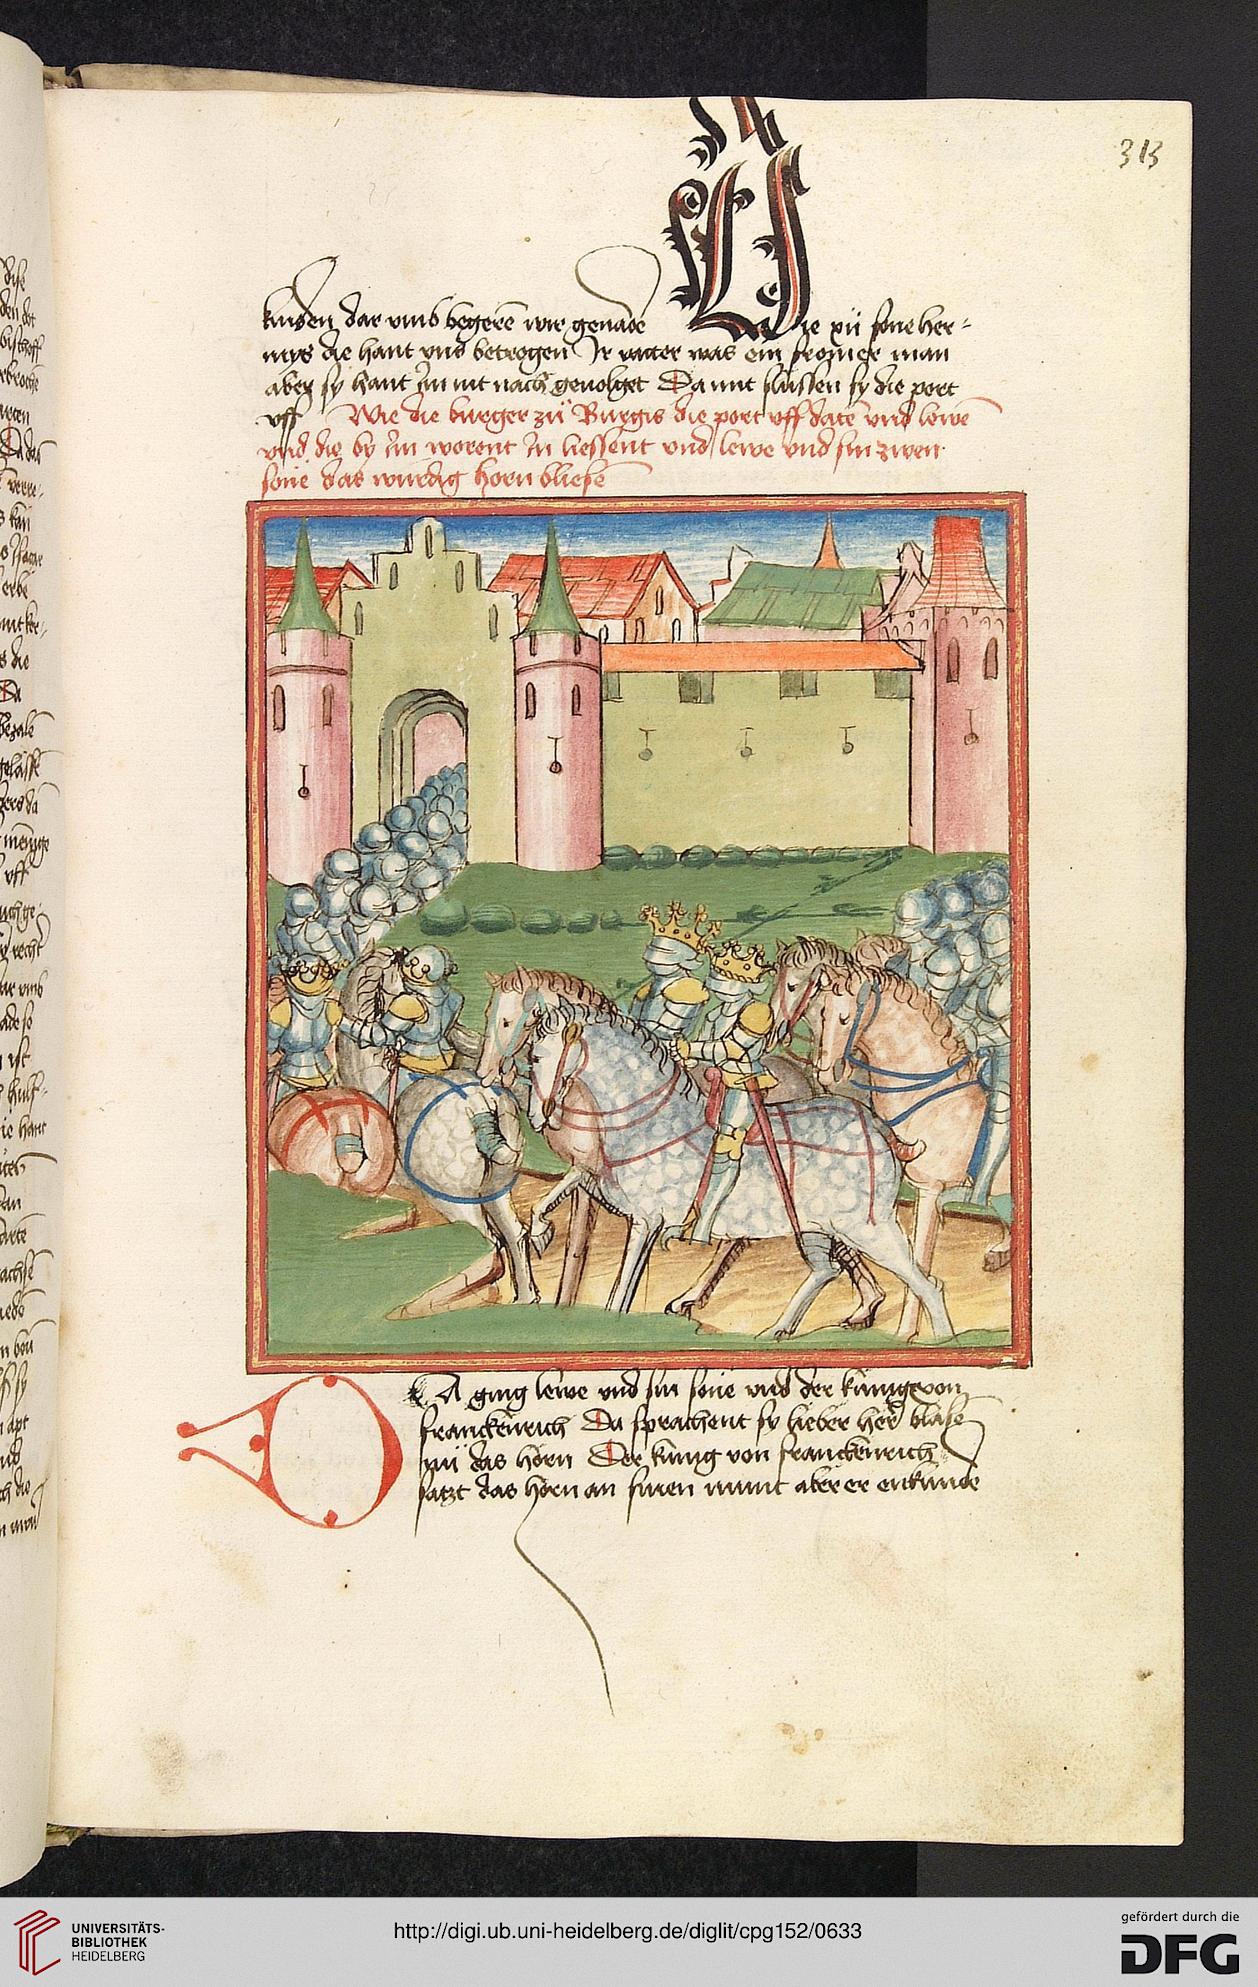 313
kinden dar vmb begerē wir genade Die xii sone her-
mys die hant vns betrogen Ir vatter was ein fromer man
aber sy hant im nit nach geuolget Da mit slussen sy die port
vff Wie die burger zü Burgis die port vff datē vnd lewē
vnd die by im worent In liessent vnd lewe vnd sin zwen
sone das wurdig horn bliesē
DA ging lewe vnd sin sone vnd der kūnig von
franckenrich Da sprachent sy lieber her blase
nü das horn Der kūnig von franckenrich
satzt das horn an sinen munt aber er enkunde
UNIVERSITÄTS-
BIBLIOTHEK
HEIDELBERG
http://digi.ub.uni-heidelberg.de/diglit/cpg152/0633
gefördert durch die
DFG